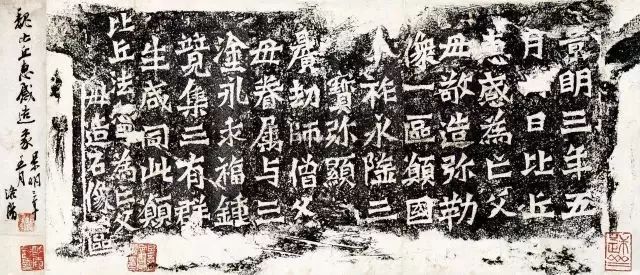 景明三年五
月日比丘
惠感為亡父
母敬造弥勒
像一區願國
祚永隆三
寶弥顯
曠劫師僧父
母眷属与三
塗永乖福鍾
竟集三有群
生咸同此願
比丘法寧為亡父
母造石像區
魏比丘惠感造象
景明三年
五月